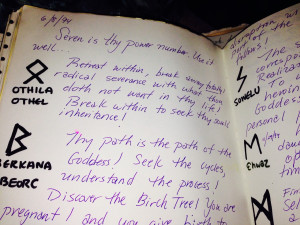 6/8/94
Seven is thy power number Use it
well...
Retreat within, break away totally!
radical severance with what thou
doth not want in thy life!
Break within to seek thy soul's
inheritance!
OTHILA
OTHEL
Thy path is the path of the
Goddess! Seek the cycles,
understand the process!
BERKANA
BEORC
Discover the Birch Tree! You are
pregnant! and you give birth to
part of the
The
Realizat
To
Goddess
personal
SOWELU
EHWAZ
time
Fi
Sel